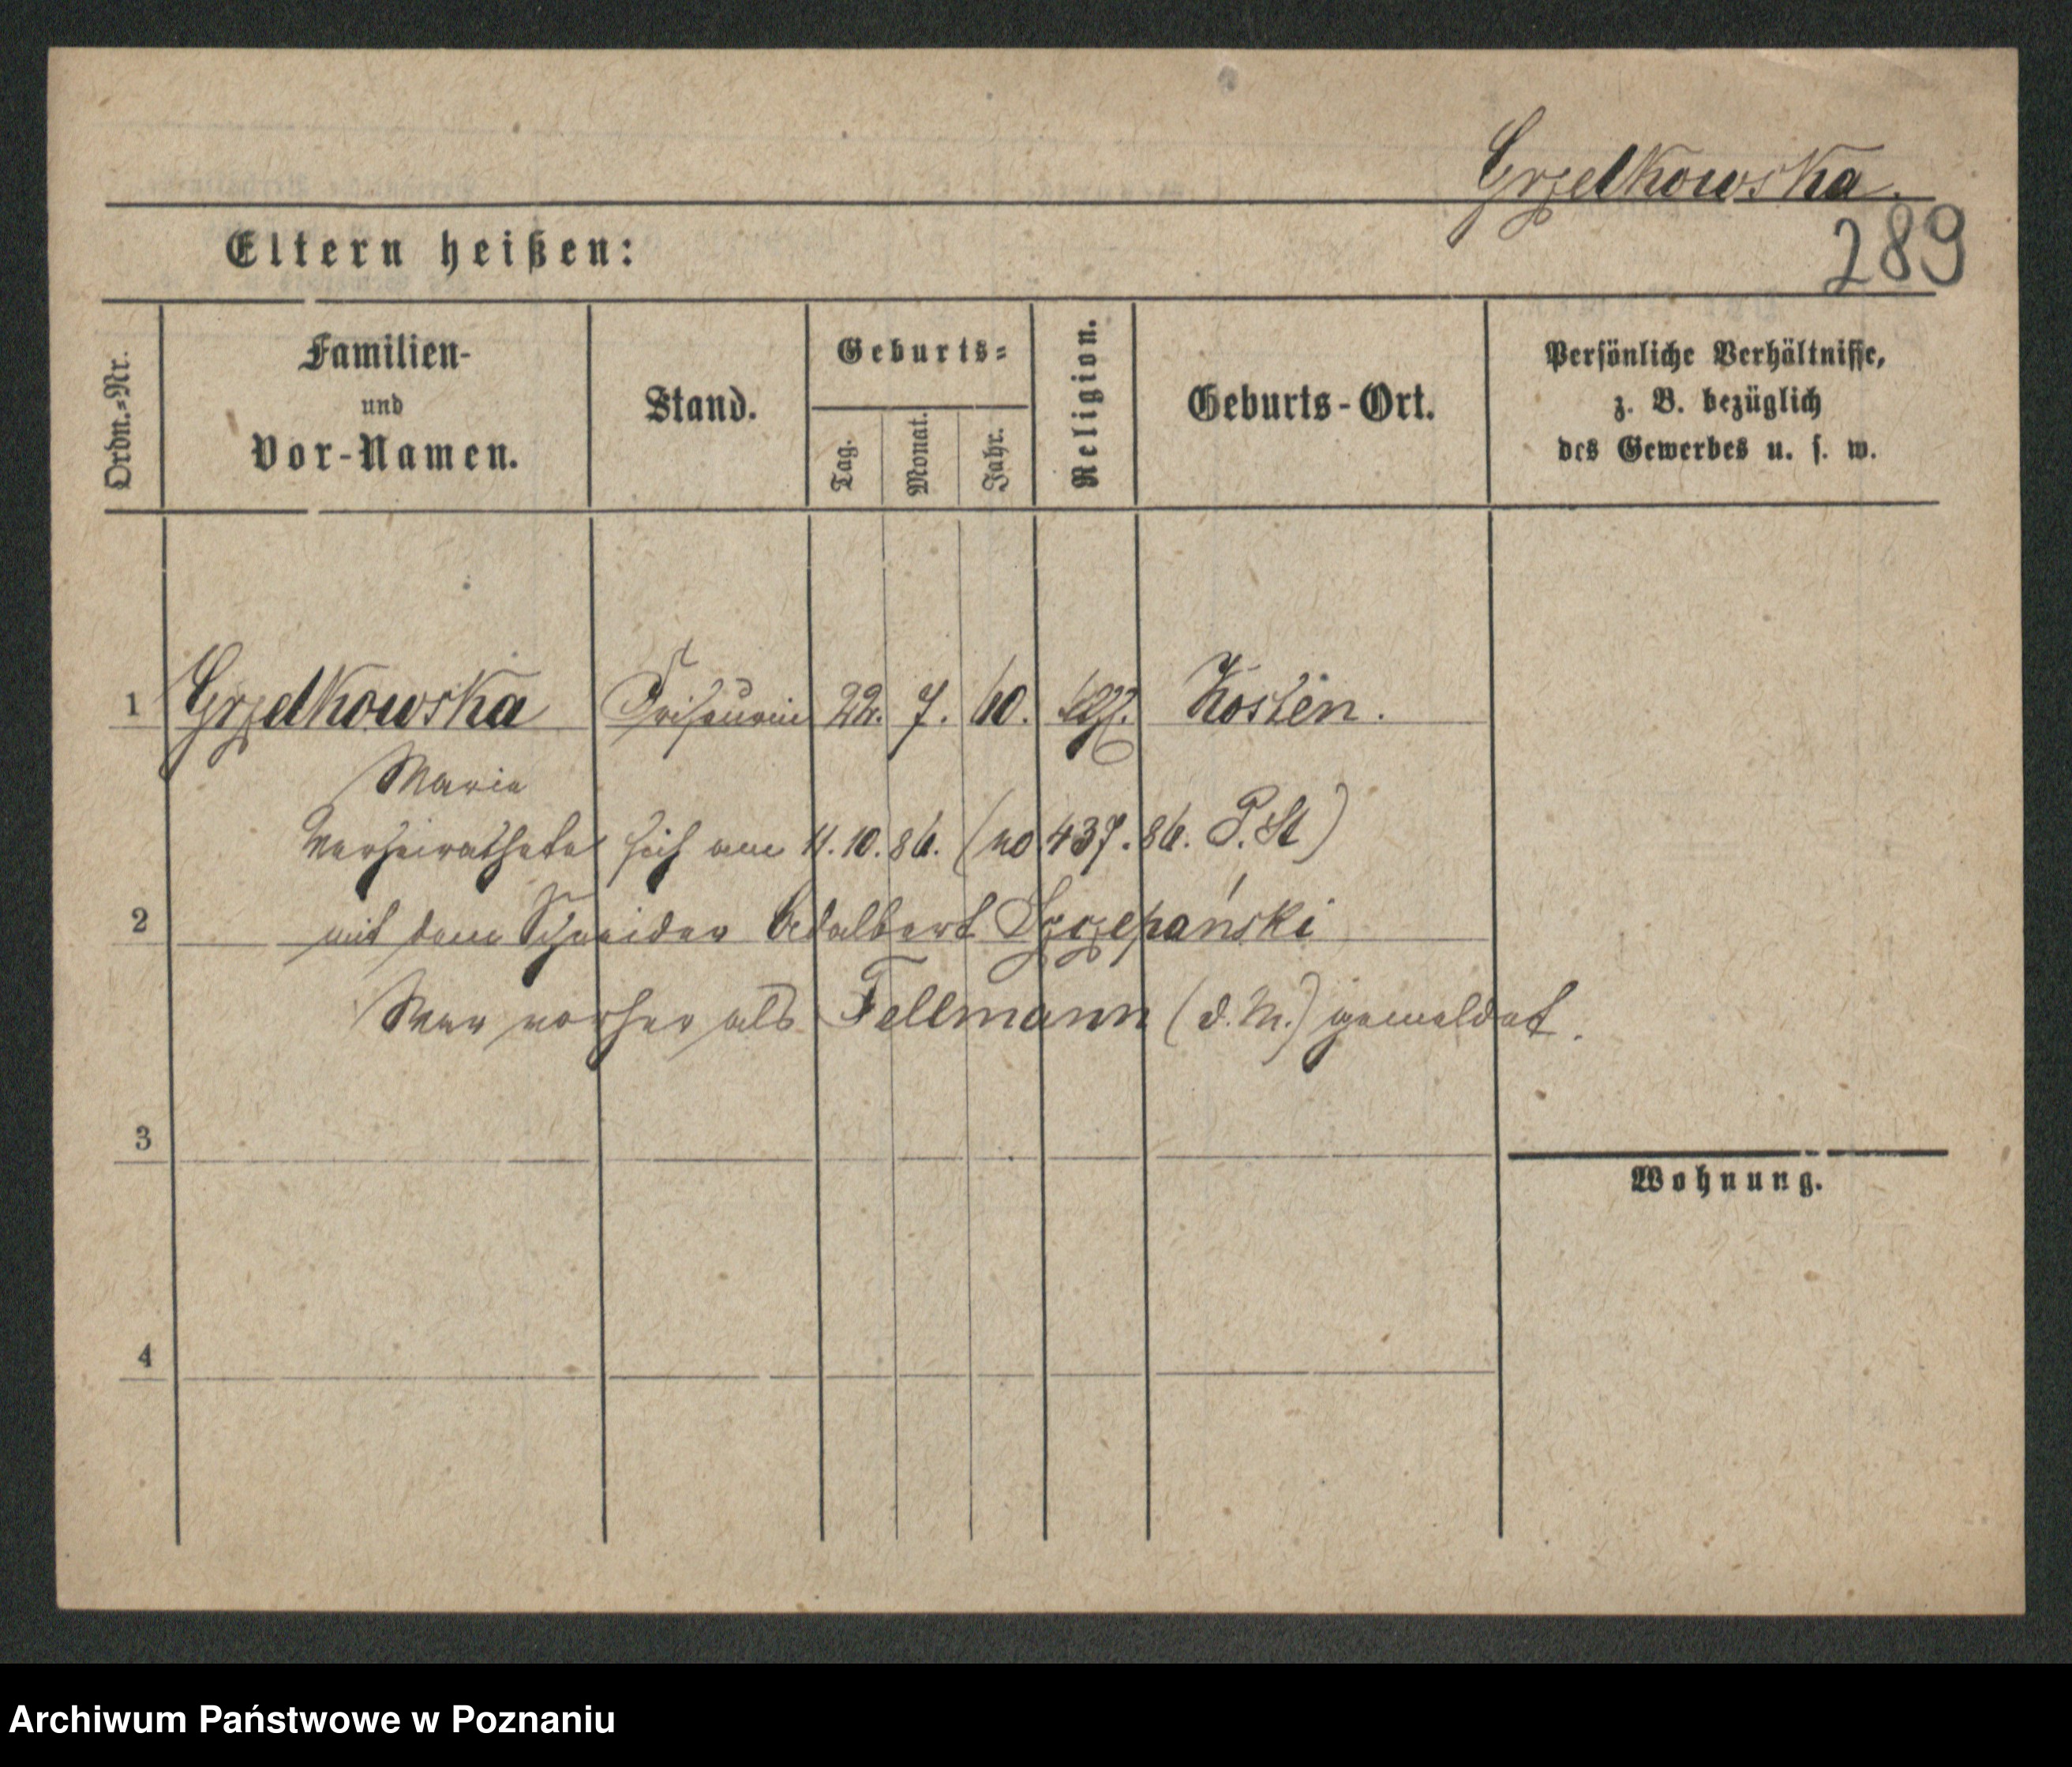 Grzelkowska.
289
Eltern heißen:
Ordn.-Nr.
Familien- und Vor-Namen.
Stand.
Geburts-
Tag.
Monat.
Jahr.
Religion.
Geburts-Ort.
Persönliche Verhältnisse,
z. B. bezüglich
des Gewerbes u. s. w.
1 Grzelkowska Friseurin 22. 7. 60. Kosten.
Marie
Verheirathete sich am 11.10.86. (No 437.86. P. St)
2 mit dem Schneider Adalbert Szczepański
War vorher als Tellmann (d. M.) gemeldet.
3
Wohnung.
4
Archiwum Państwowe w Poznaniu